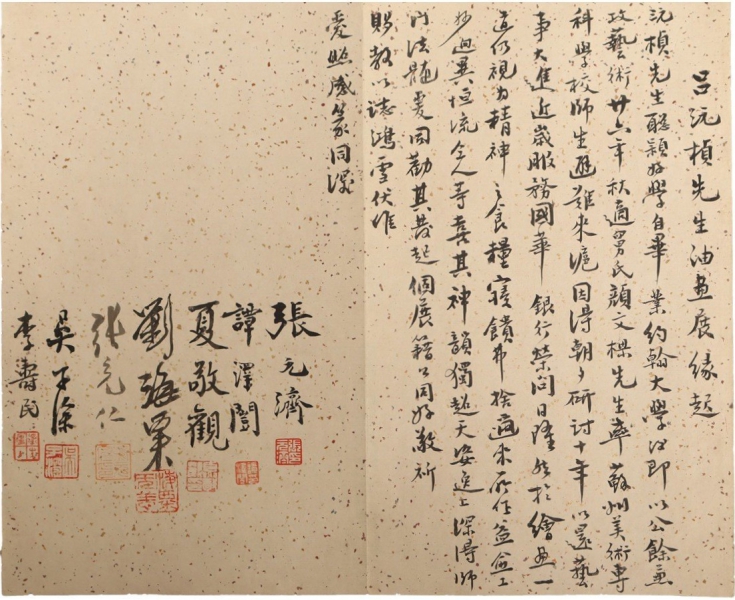 呂沅楨先生油畫展緣起
沅楨先生聰穎好學自畢業約翰大學後即以公餘兼
攻藝術廿六年秋適舅氏顏文樑先生率蘇州美術專
科學校師生避難來滬因得朝夕研討十年以還藝
事大進近歲服務國華銀行榮問日隆然於繪畫一
道仍視為精神之食糧寢饋弗捨邇來所作益愈工
妙迥異恒流令人尋喜其神韻獨超天姿逸上深得師
門法髓爰同勸其發起個展藉公同好敬祈
賜教以誌鴻雪伏維
愛照咸篆同深
張元濟
譚澤闓
夏敬觀
劉海粟
張充仁
吳子深
李壽民